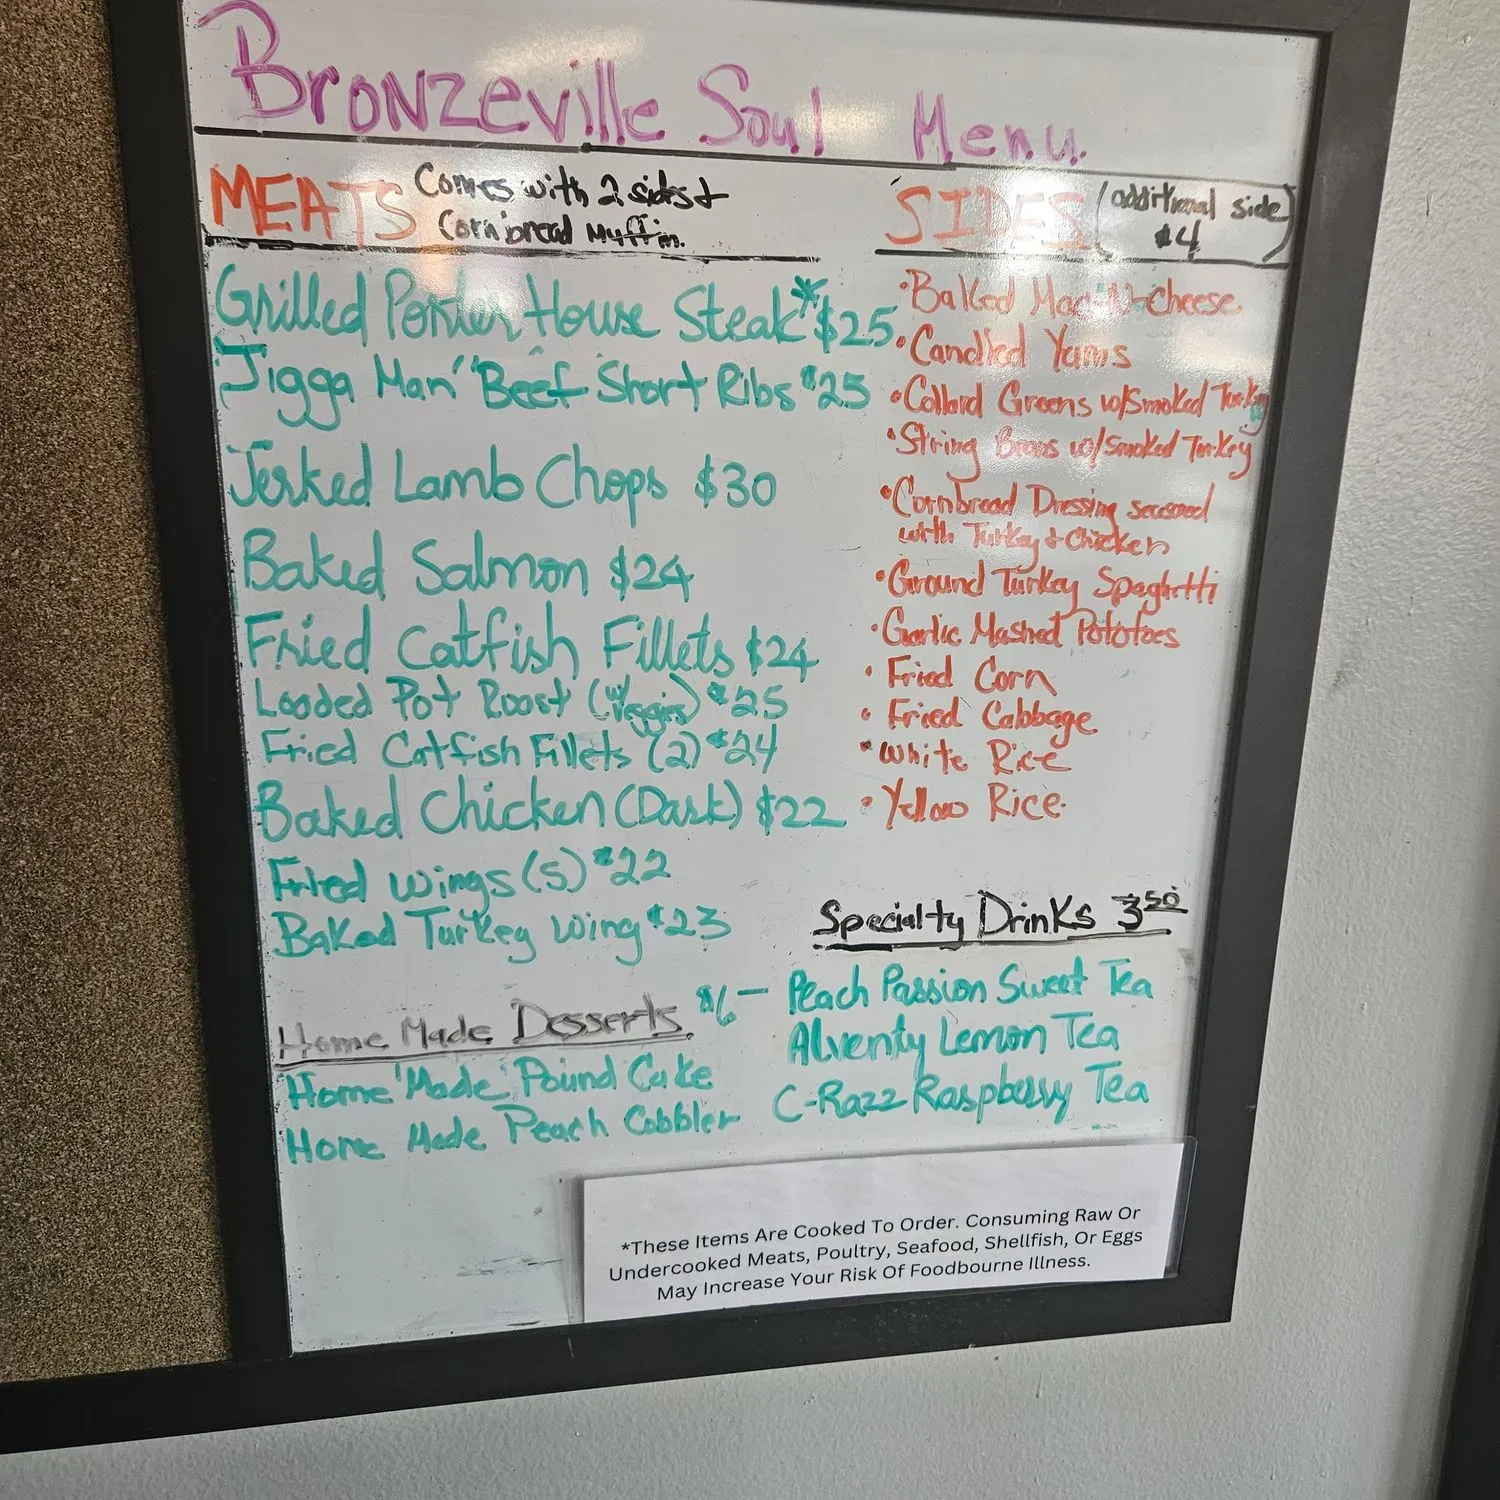 Bronzeville Soul Menu
MEATS Comes with 2 sides +
Cornbread Muffin.
Grilled Porter House Steak* $25
"Jigga Man" Beef Short Ribs $25
Jerked Lamb Chops $30
Baked Salmon $24
Fried Catfish Fillets $24
Loaded Pot Roast (w/ veggies) $25
Fried Catfish Fillets (2) $24
Baked Chicken (Dark) $22
Fried Wings (5) $22
Baked Turkey Wing $23
Home Made Desserts $6 —
Home Made Pound Cake
Home Made Peach Cobbler
SIDES (additional side
$4)
• Baked Mac-N-Cheese
• Candied Yams
• Collard Greens w/Smoked Turkey
• String Beans w/Smoked Turkey
• Cornbread Dressing seasoned
with Turkey & Chicken
• Ground Turkey Spaghetti
• Garlic Mashed Pototoes
• Fried Corn
• Fried Cabbage
• White Rice
• Yellow Rice
Specialty Drinks 3.50
Peach Passion Sweet Tea
Alventy Lemon Tea
C-Razz Raspberry Tea
*These Items Are Cooked To Order. Consuming Raw Or
Undercooked Meats, Poultry, Seafood, Shellfish, Or Eggs
May Increase Your Risk Of Foodbourne Illness.